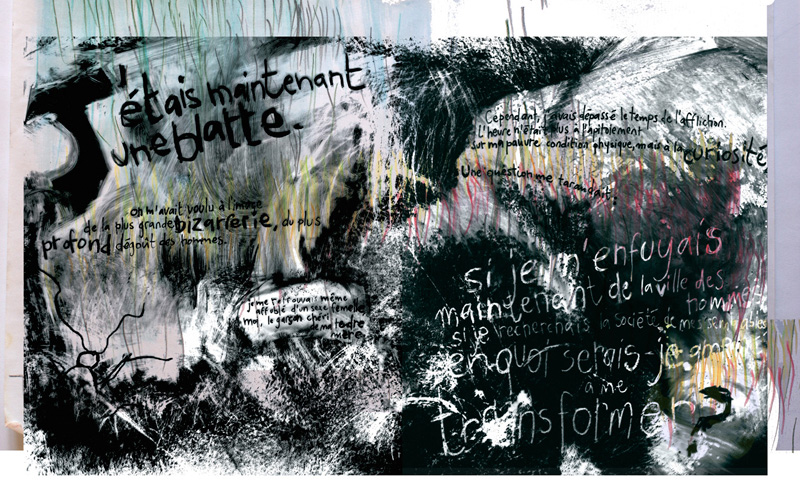 J'étais maintenant
une blatte.
on m'avait voulu à l'image
de la plus grande bizarrerie, du plus
profond dégoût des hommes.
je me retrouvais même
affublé d'un sexe femelle,
moi, le garçon chéri
de ma tendre
mère.
Cependant, j'avais dépassé le temps de l'affliction.
L'heure n'était plus à l'apitoiement
sur ma pauvre condition physique, mais à la curiosité
Une question me taraudait:
si je m'enfuyais
maintenant de la ville des
hommes
si je recherchais la société de mes semblables
en quoi serais-je
à me
transformer?